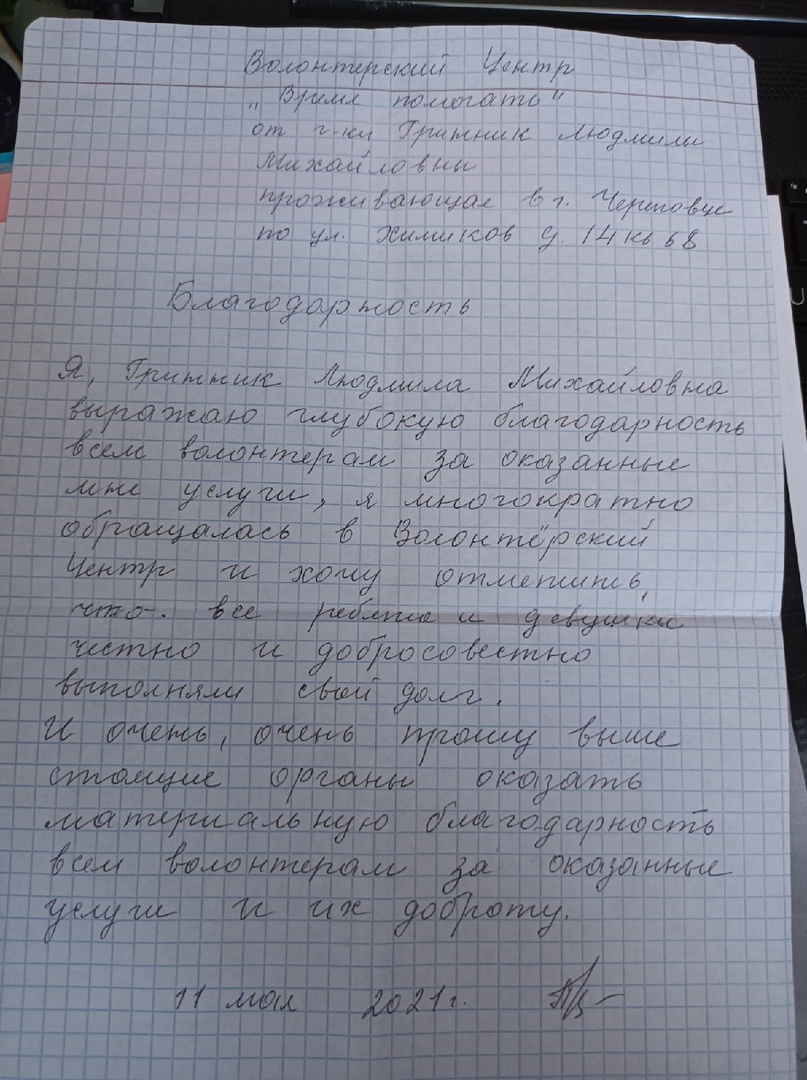 Волонтерский Центр
„Время помогать"
от г-ки Гритник Людмилы
Михайловны
проживающая в г. Череповце
по ул. Химиков д. 14 кв 68
Благодарность
Я, Гритник Людмила Михайловна
выражаю глубокую благодарность
всем волонтерам за оказанные
мне услуги, я многократно
обращалась в Волонтёрский
Центр и хочу отметить,
что все ребята и девушки
честно и добросовестно
выполняли свой долг.
И очень, очень прошу выше
стоящие органы оказать
материальную благодарность
всем волонтерам за оказанные
услуги и их доброту.
11 мая 2021 г.